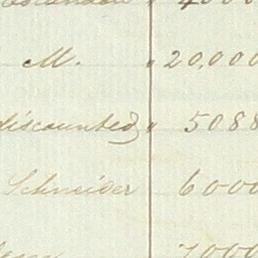 4000
M. " 20,000
discounted " 5088
Schneider 6000
7000